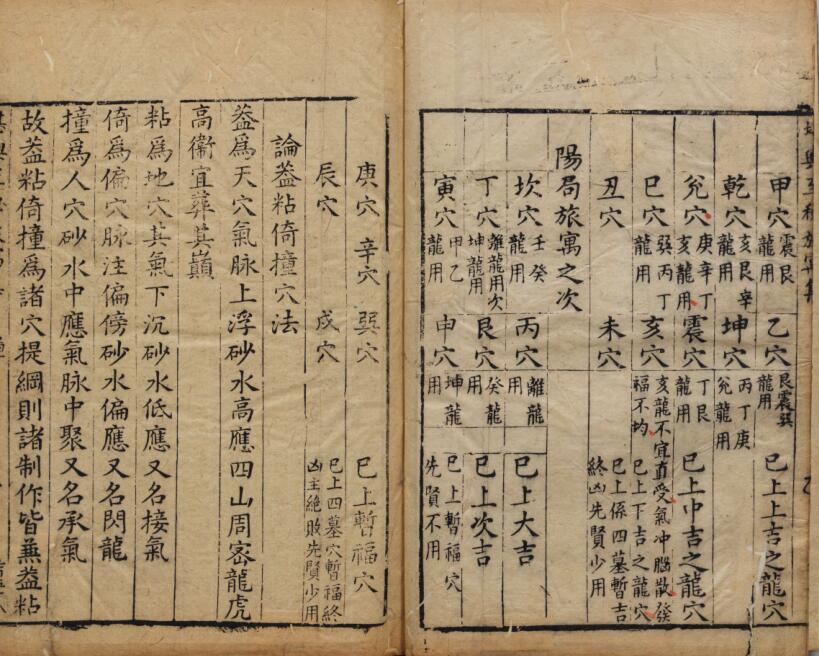 甲穴 震艮龍用 乙穴 艮震巽龍用 已上上吉之龍穴
乾穴 亥艮辛龍用 坤穴 丙丁庚兌龍用
兊穴 庚辛丁亥龍用 震穴 丁艮龍用 已上中吉之龍穴
巳穴 巽丙丁龍用 亥穴 亥龍不宜直受氣冲腦散發福不均 已上下吉之龍穴
丑穴 未穴 已上係四墓暫吉終凶先賢少用
陽局旅寓之次
坎穴 壬癸龍用 丙穴 離龍用 已上大吉
丁穴 離龍用次坤龍用 艮穴 癸龍用 已上次吉
寅穴 甲乙龍用 申穴 坤龍用 已上暫福穴先賢不用
庚穴 辛穴 巽穴 已上暫福穴
辰穴 戌穴 已上四墓穴暫福終凶主絶敗先賢少用
論葢粘倚撞穴法
葢爲天穴氣脉上浮砂水高應四山周密龍虎
高衞宜葬其巔
粘爲地穴其氣下沉砂水低應又名接氣
倚爲偏穴脉注偏傍砂水偏應又名閃龍
撞爲人穴砂水中應氣脉中聚又名承氣
故葢粘倚撞爲諸穴提綱則諸制作皆無葢粘